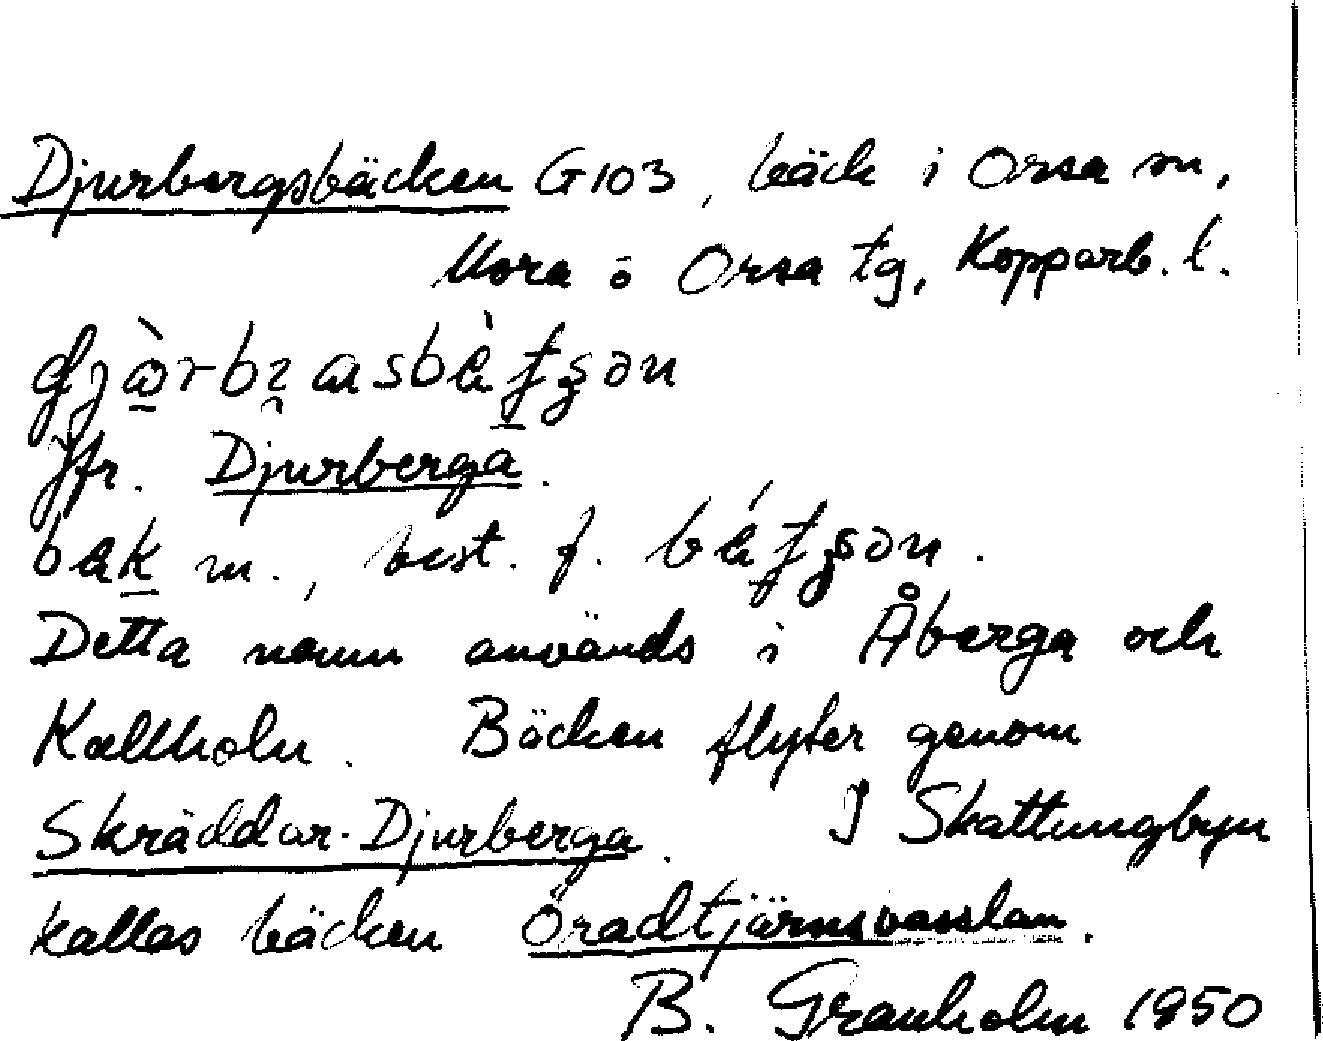 Djurbergsbäcken G103, bäck i Orsa sn,
Mora o Orsa tg, Kopparb. l.
Jfr. Djurberga.
bak m., best. f.
Detta namn används i Åberga och
Kallholn. Bäcken flyter genom
Skräddar-Djurberga. I Skattungbyn
kallas bäcken Öradtjärnsvasslan.
B. Granholm 1950